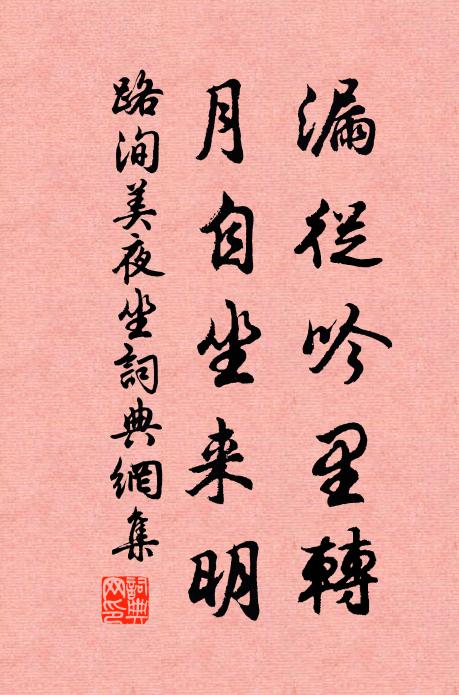 漏從吟里轉
月自坐来明
路洵美夜坐詞典網集
詞典网印